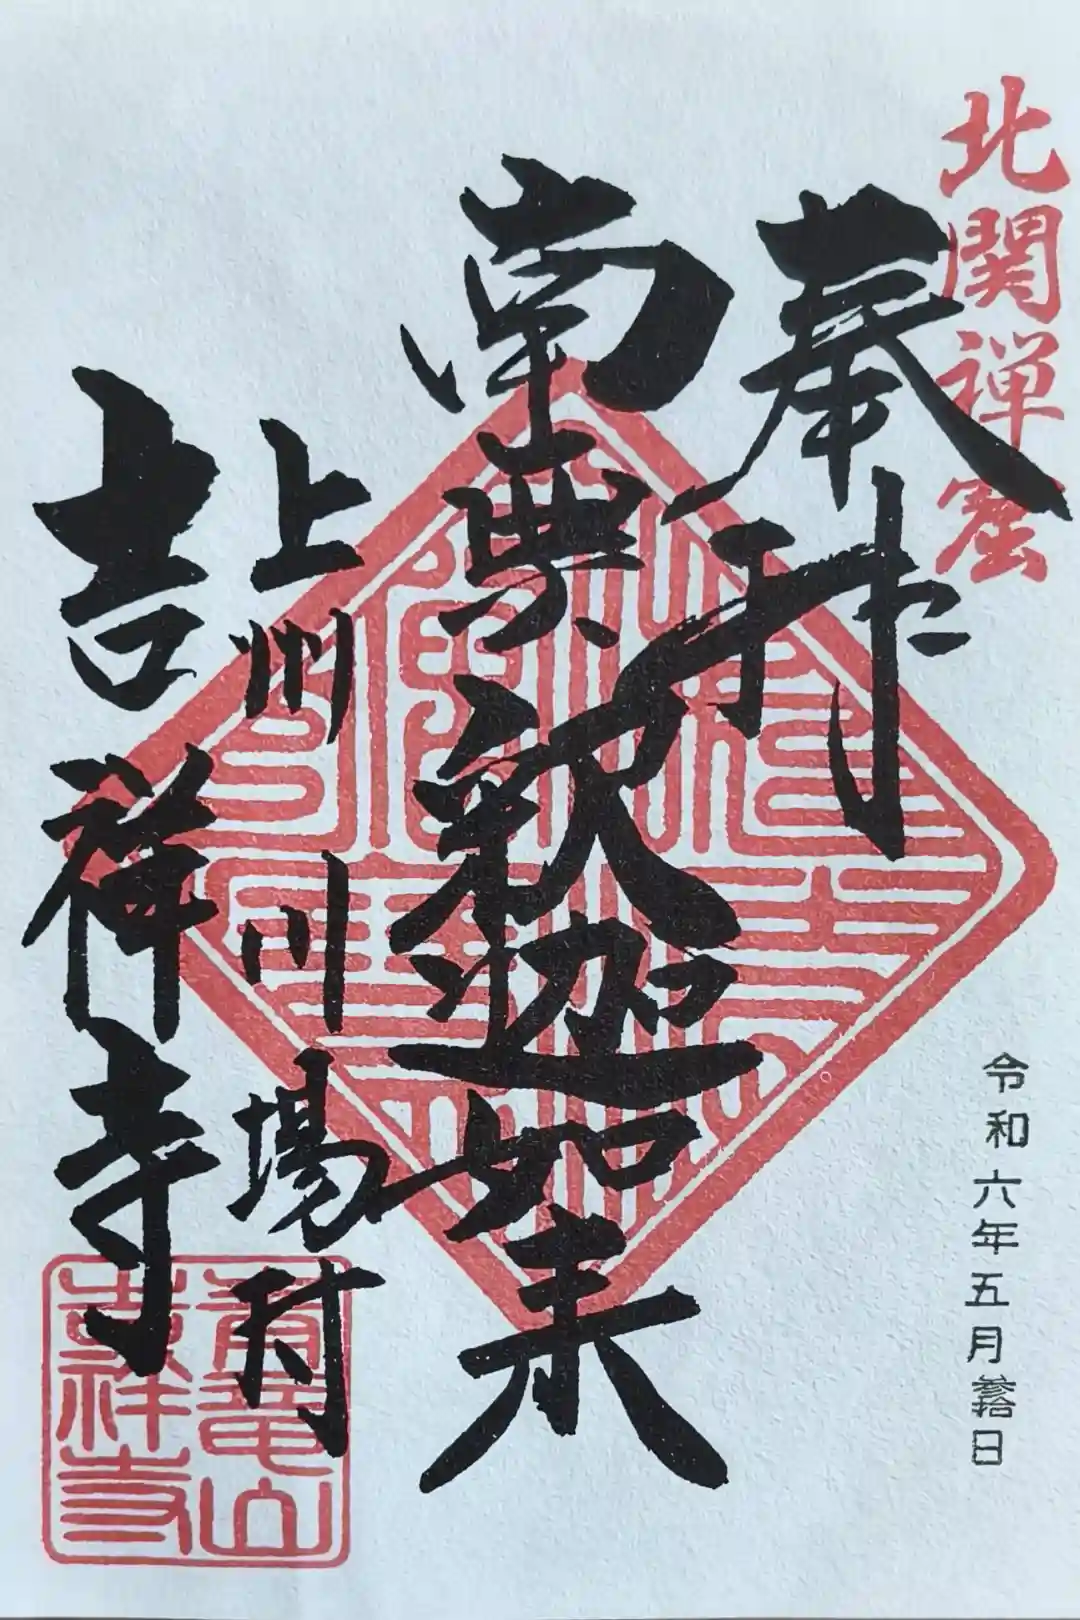 北関禅窟
奉拝
令和六年五月参拾日
南無釈迦如来
上州川場村
吉祥寺
青龍山
吉祥寺